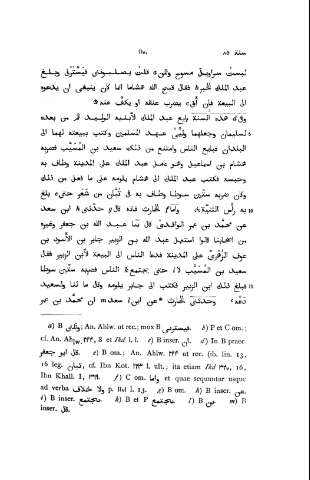 سنة ٨٥ ١١٧٠
لبست سراويل مسوح ولكن قلت يصلبونى فيسترنى وبلغ
عبد الملك الخبر فقال قبح الله هشاما انما كان ينبغى ان يدعوه
الى البيعة فان أبى يضرب عنقه او يكف عنه
وفى هذه السنة بايع عبد الملك لابنيه الوليد ثم من بعده
لسليمان وجعلهما وليى عهد المسلمين وكتب ببيعته لهما الى
البلدان فبايع الناس وامتنع من ذلك سعيد بن المسيّب فضربه
هشام بن اسماعيل وهو عامل عبد الملك على المدينة وطاف به
وحبسه فكتب عبد الملك الى هشام يلومه على ما فعل من ذلك
وكان ضربه ستين سوطا وطاف به فى تبّان من شعر حتى بلغ
به رأس الثنيّة، وأما الحارث فانه قال حدثنى ابن سعد
عن محمد بن عمر الواقدى قال نا عبد الله بن جعفر وغيره
من اصحابنا قالوا استعمل عبد الله بن الزبير جابر بن الأسود بن
عوف الزهرى على المدينة فدعا الناس الى البيعة لابن الزبير فقال
سعيد بن المسيّب لا حتى يجتمع الناس فضربه ستين سوطا
فبلغ ذلك ابن الزبير فكتب الى جابر يلومه وقال ما لنا ولسعيد
دعه، وحدثنى الحارث عن ابن سعد ان محمد بن عمر
a) B ولكنى; An. Ahlw. ut rec.; mox B فيسترنى. b) P et Com.;
cf. An. Ahlw. ٢٤٣, 8 et Ikd l. l. c) B inser. ان. d) In B praec.
قال ابو جعفر. e) B om.; An. Ahlw. ٢٤٣ ut rec. (ib. lin. 13,
16 leg. تبان, cf. Ibn Kot. ٢٢٣ l. ult.; ita etiam Ikd
Ibn Khall. I, f) C om. واما et quae sequuntur usque
ad verba ولا خلاف p. l. 13. g) B om. h) B inser. عن.
i) B inser. k) B et P l) B عن m) B
inser. قال.